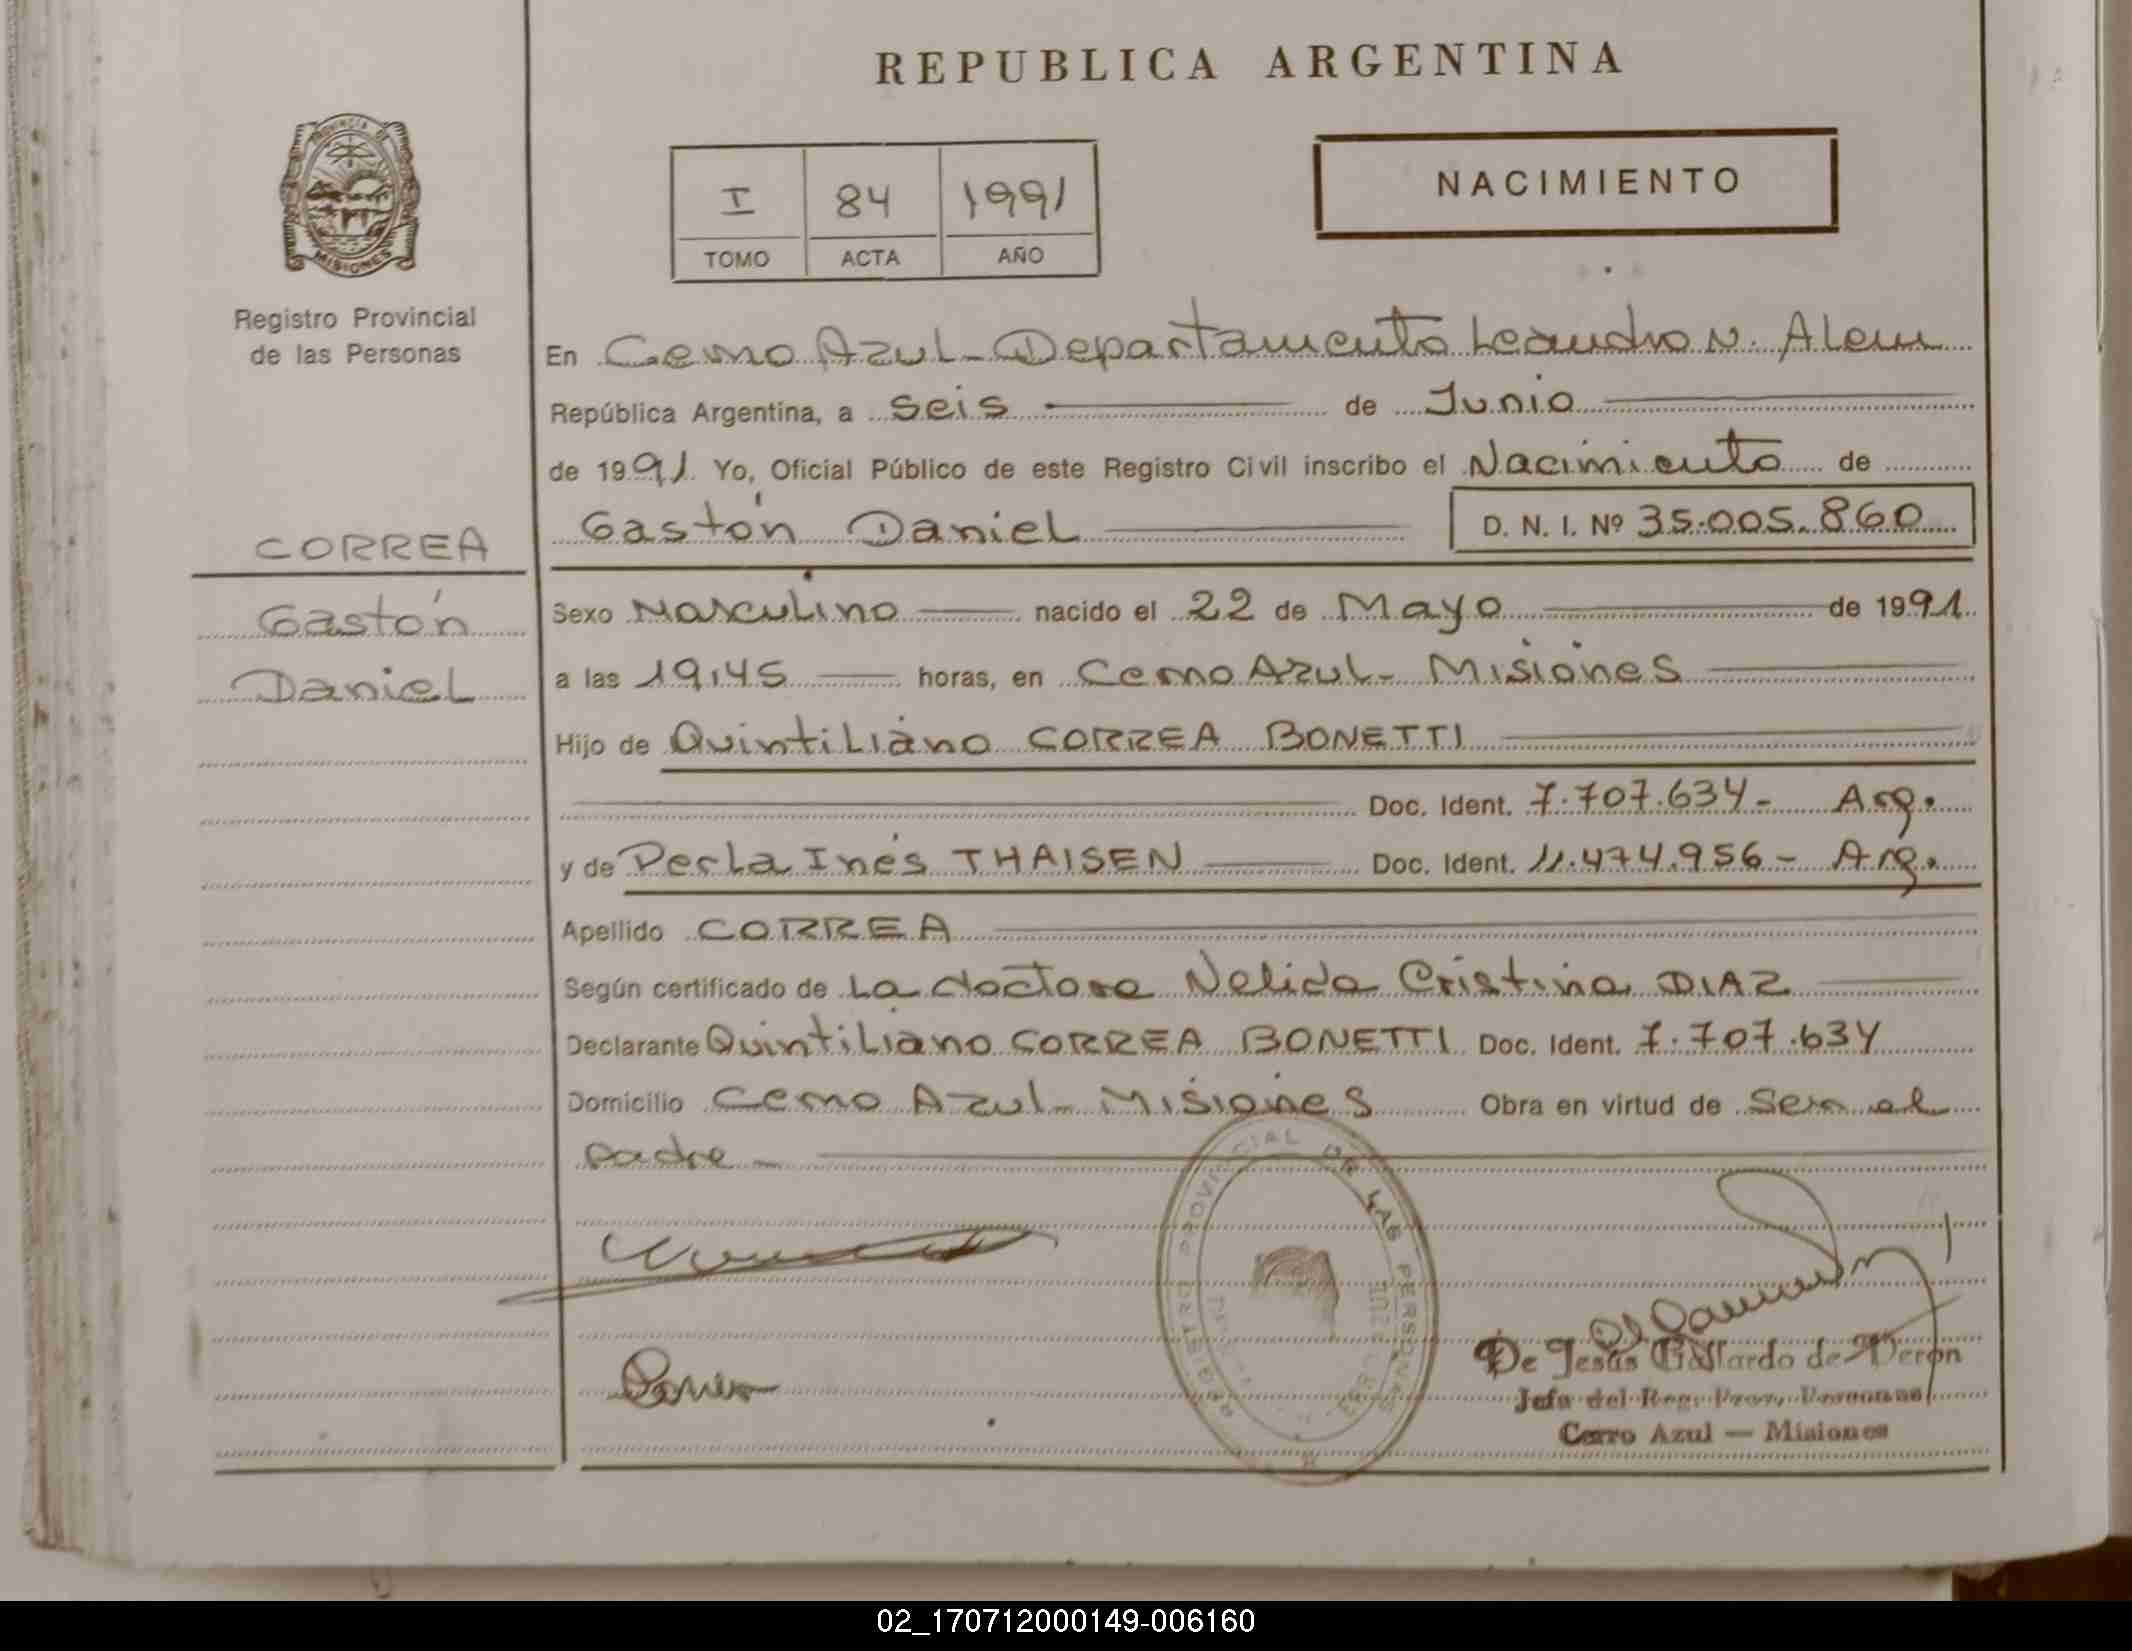 REPUBLICA ARGENTINA
PROVINCIA DE MISIONES
Registro Provincial
de las Personas
I 84 1991
TOMO ACTA AÑO
NACIMIENTO
En Cerro Azul - Departamento Leandro N. Alem
República Argentina, a seis de Junio
de 1991. Yo, Oficial Público de este Registro Civil inscribo el Nacimiento de
Gastón Daniel D. N. I. Nº 35.005.860
CORREA
Gastón
Daniel
Sexo Masculino nacido el 22 de Mayo de 1991.
a las 19,45 horas, en Cerro Azul - Misiones
Hijo de Quintiliano CORREA BONETTI
Doc. Ident. 7.707.634 - Arg.
y de Perla Inés THAISEN Doc. Ident. 11.474.956 - Arg.
Apellido CORREA
Según certificado de La doctora Nelida Cristina DIAZ
Declarante Quintiliano CORREA BONETTI Doc. Ident. 7.707.634
Domicilio Cerro Azul - Misiones Obra en virtud de ser el
padre -
REGISTRO PROVINCIAL DE LAS PERSONAS
De Jesús Gallardo de Perón
Jefa del Reg. Prov. Personas
Cerro Azul — Misiones
02_170712000149-006160